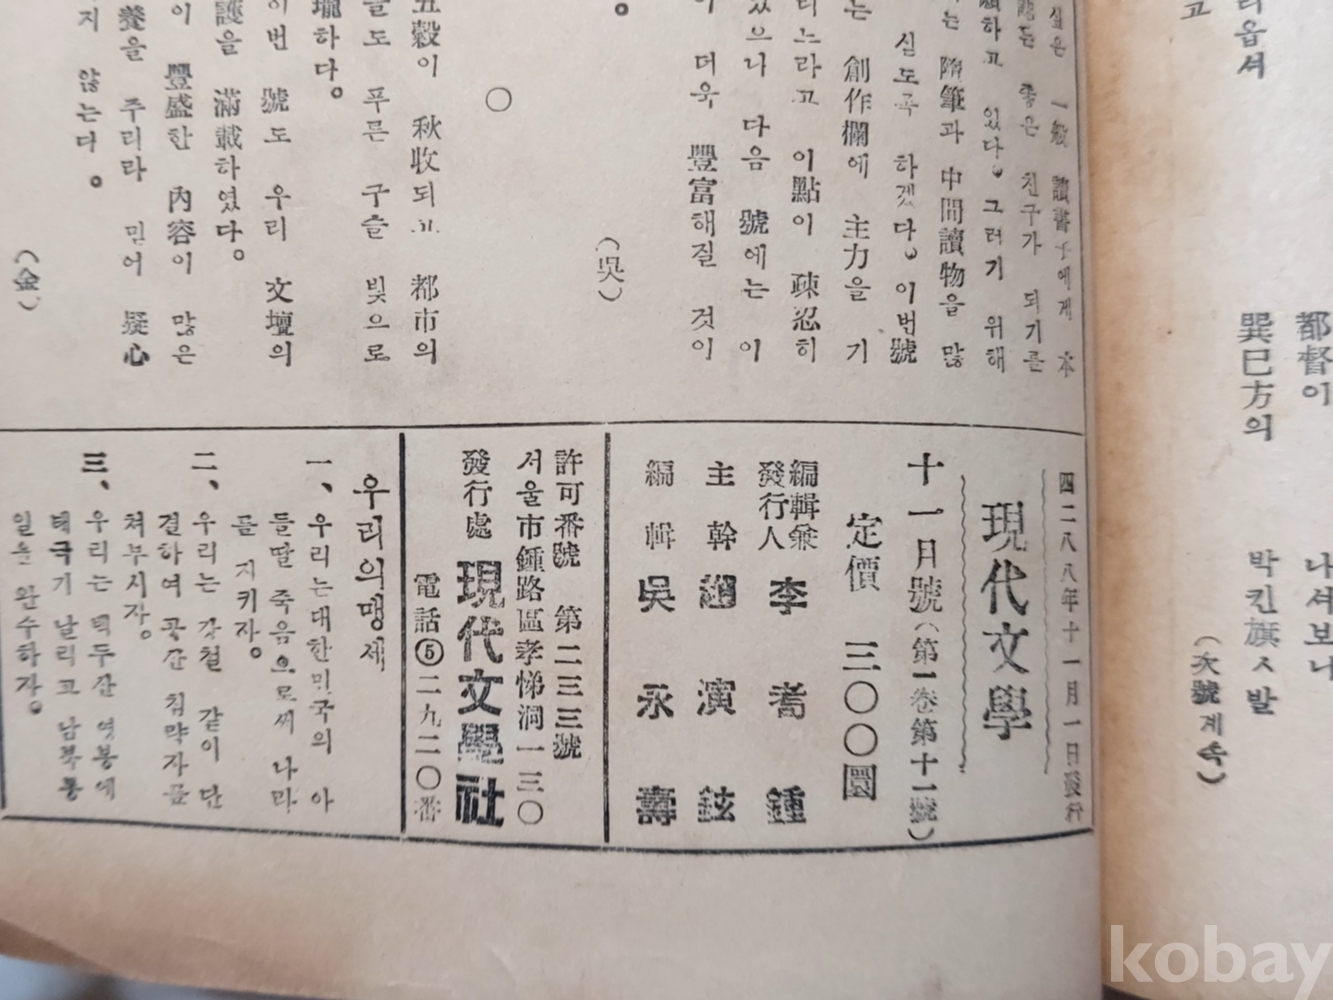 리옵셔
고
都督이
巽巳方의
나셔보니
박킨旗ㅅ발
(次號계속)
一般 讀書子에게 本
좋은 친구가 되기를
願하고 있다。그러기 위해
는 隨筆과 中間讀物을 많
실도록 하겠다。이번號
는 創作欄에 主力을 기
리느라고 이點이 疎忽히
었으나 다음 號에는 이
이 더욱 豐富해질 것이
。
(吳)
○
五穀이 秋收되고 都市의
들도 푸른 구슬 빛으로
瓏하다。
이번 號도 우리 文壇의
護을 滿載하였다。
이 豐盛한 內容이 많은
養을 주리라 믿어 疑心
지 않는다。
(金)
四二八八年十一月一日發行
現代文學
十一月號(第一卷第十一號)
定價 三〇〇圜
編輯兼
發行人 李耉鍾
主幹 趙演鉉
編輯 吳永壽
許可番號 第二三三號
서울市鍾路區孝悌洞一三〇
發行處 現代文學社
電話⑤二九二〇番
우리의맹세
一、우리는대한민국의 아
들딸 죽음으로써 나라
를 지키자。
二、우리는 강철 같이 단
결하여 공산 침략자를
쳐부시자。
三、우리는 백두산 영봉에
태극기 날리고 남북통
일을 완수하자。
kobay